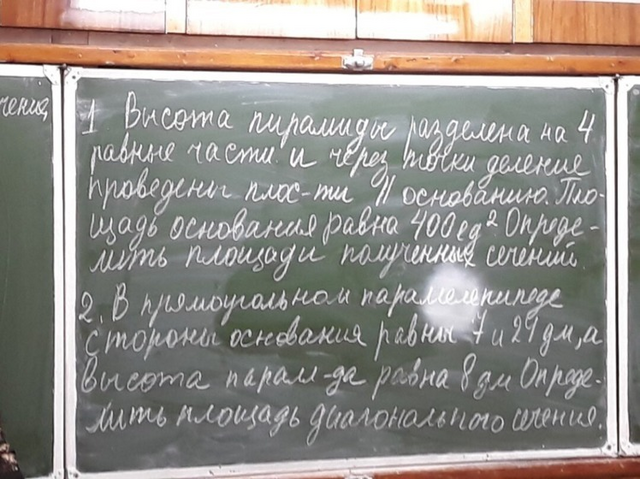 чения,
1 Высота пирамиды разделена на 4
равные части и через точки деления
проведены плос-ти || основанию. Пло-
щадь основания равна 400 ед² Опреде-
лить площади полученных сечений.
2. В прямоугольном параллелепипеде
стороны основания равны 7 и 24 дм, а
высота парал-да равна 8 дм Опреде-
лить площадь диагонального сечения.